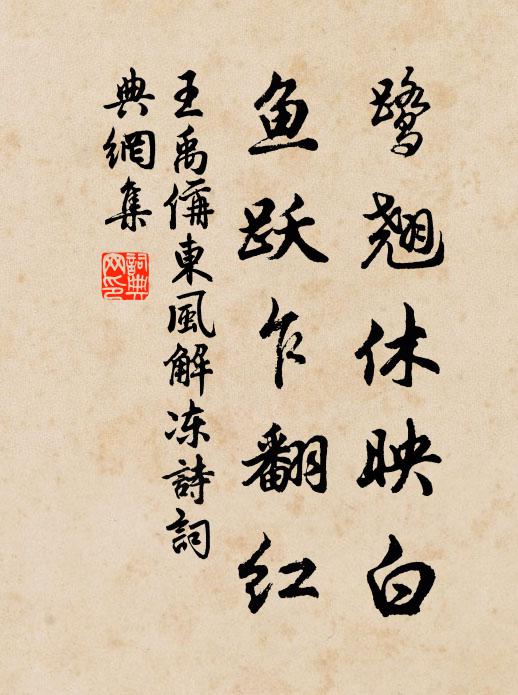 鹭翘休映白
鱼跃乍翻红
王禹偁東風解冻詩詞
典網集
詞典網印